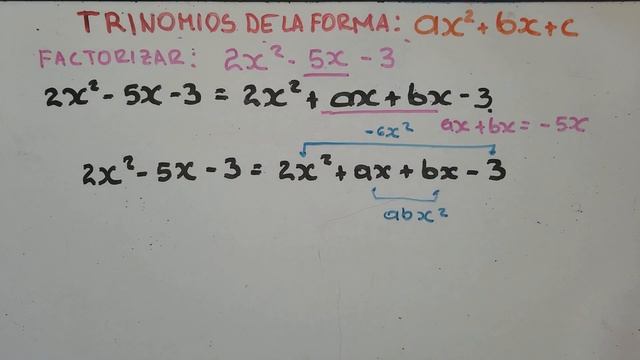 TRINOMIOS DE LA FORMA: ax²+bx+c
FACTORIZAR: 2x²-5x-3
2x²-5x-3 = 2x²+ax+bx-3
ax+bx=-5x
-6x²
2x²-5x-3 = 2x²+ax+bx-3
abx²